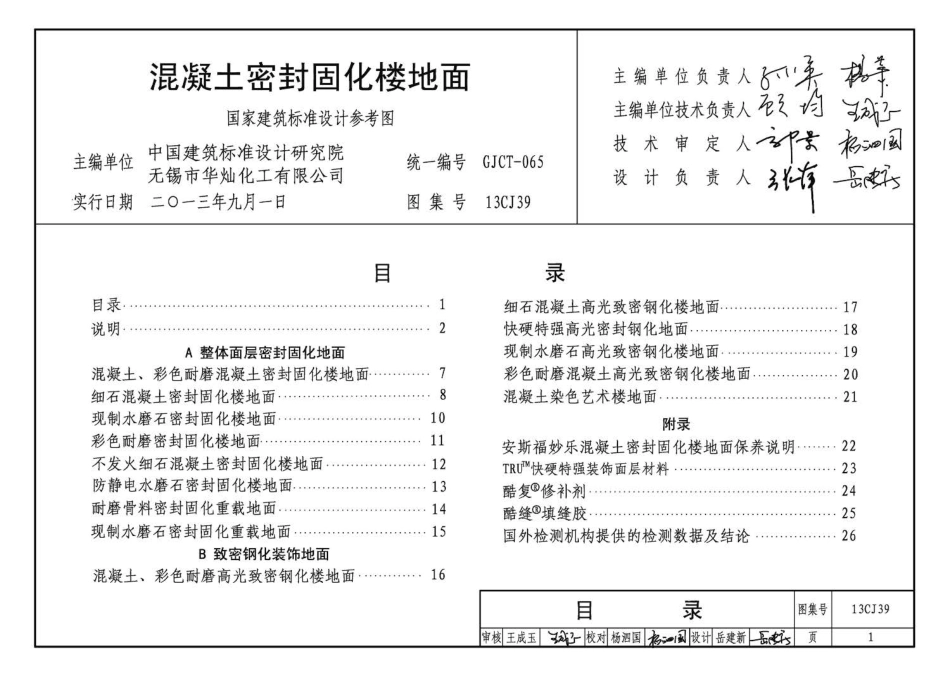 混凝土密封固化楼地面
国家建筑标准设计参考图
主编单位 中国建筑标准设计研究院
无锡市华灿化工有限公司
统一编号 GJCT-065
实行日期 二〇一三年九月一日
图集号 13CJ39
主编单位负责人
主编单位技术负责人
技术审定人
设计负责人
目 录
目录 1
说明 2
A 整体面层密封固化地面
混凝土、彩色耐磨混凝土密封固化楼地面 7
细石混凝土密封固化楼地面 8
现制水磨石密封固化楼地面 10
彩色耐磨密封固化楼地面 11
不发火细石混凝土密封固化楼地面 12
防静电水磨石密封固化楼地面 13
耐磨骨料密封固化重载地面 14
现制水磨石密封固化重载地面 15
B 致密钢化装饰地面
混凝土、彩色耐磨高光致密钢化楼地面 16
细石混凝土高光致密钢化楼地面 17
快硬特强高光密封钢化地面 18
现制水磨石高光致密钢化楼地面 19
彩色耐磨混凝土高光致密钢化楼地面 20
混凝土染色艺术楼地面 21
附录
安斯福妙乐混凝土密封固化楼地面保养说明 22
TRU™快硬特强装饰面层材料 23
酷复®修补剂 24
酷缝®填缝胶 25
国外检测机构提供的检测数据及结论 26
目 录 图集号 13CJ39
审核 王成玉 校对 杨泗国 设计 岳建新 页 1